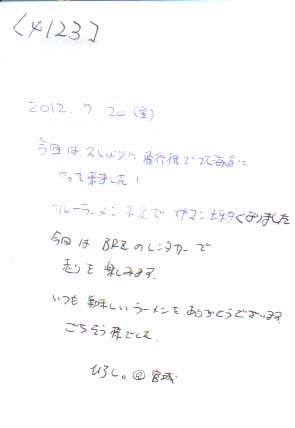 [4123]
2012. 7 20 (金)
今回は久しぶりに飛行機で北海道に
やって来ました!
カレーラーメン不足でガマン出来なくなりました
今回はBRZのレンタカーで
走りを楽しみます。
いつも美味しいラーメンをありがとうございます
ごちそう様でした
ひろし。@宮城